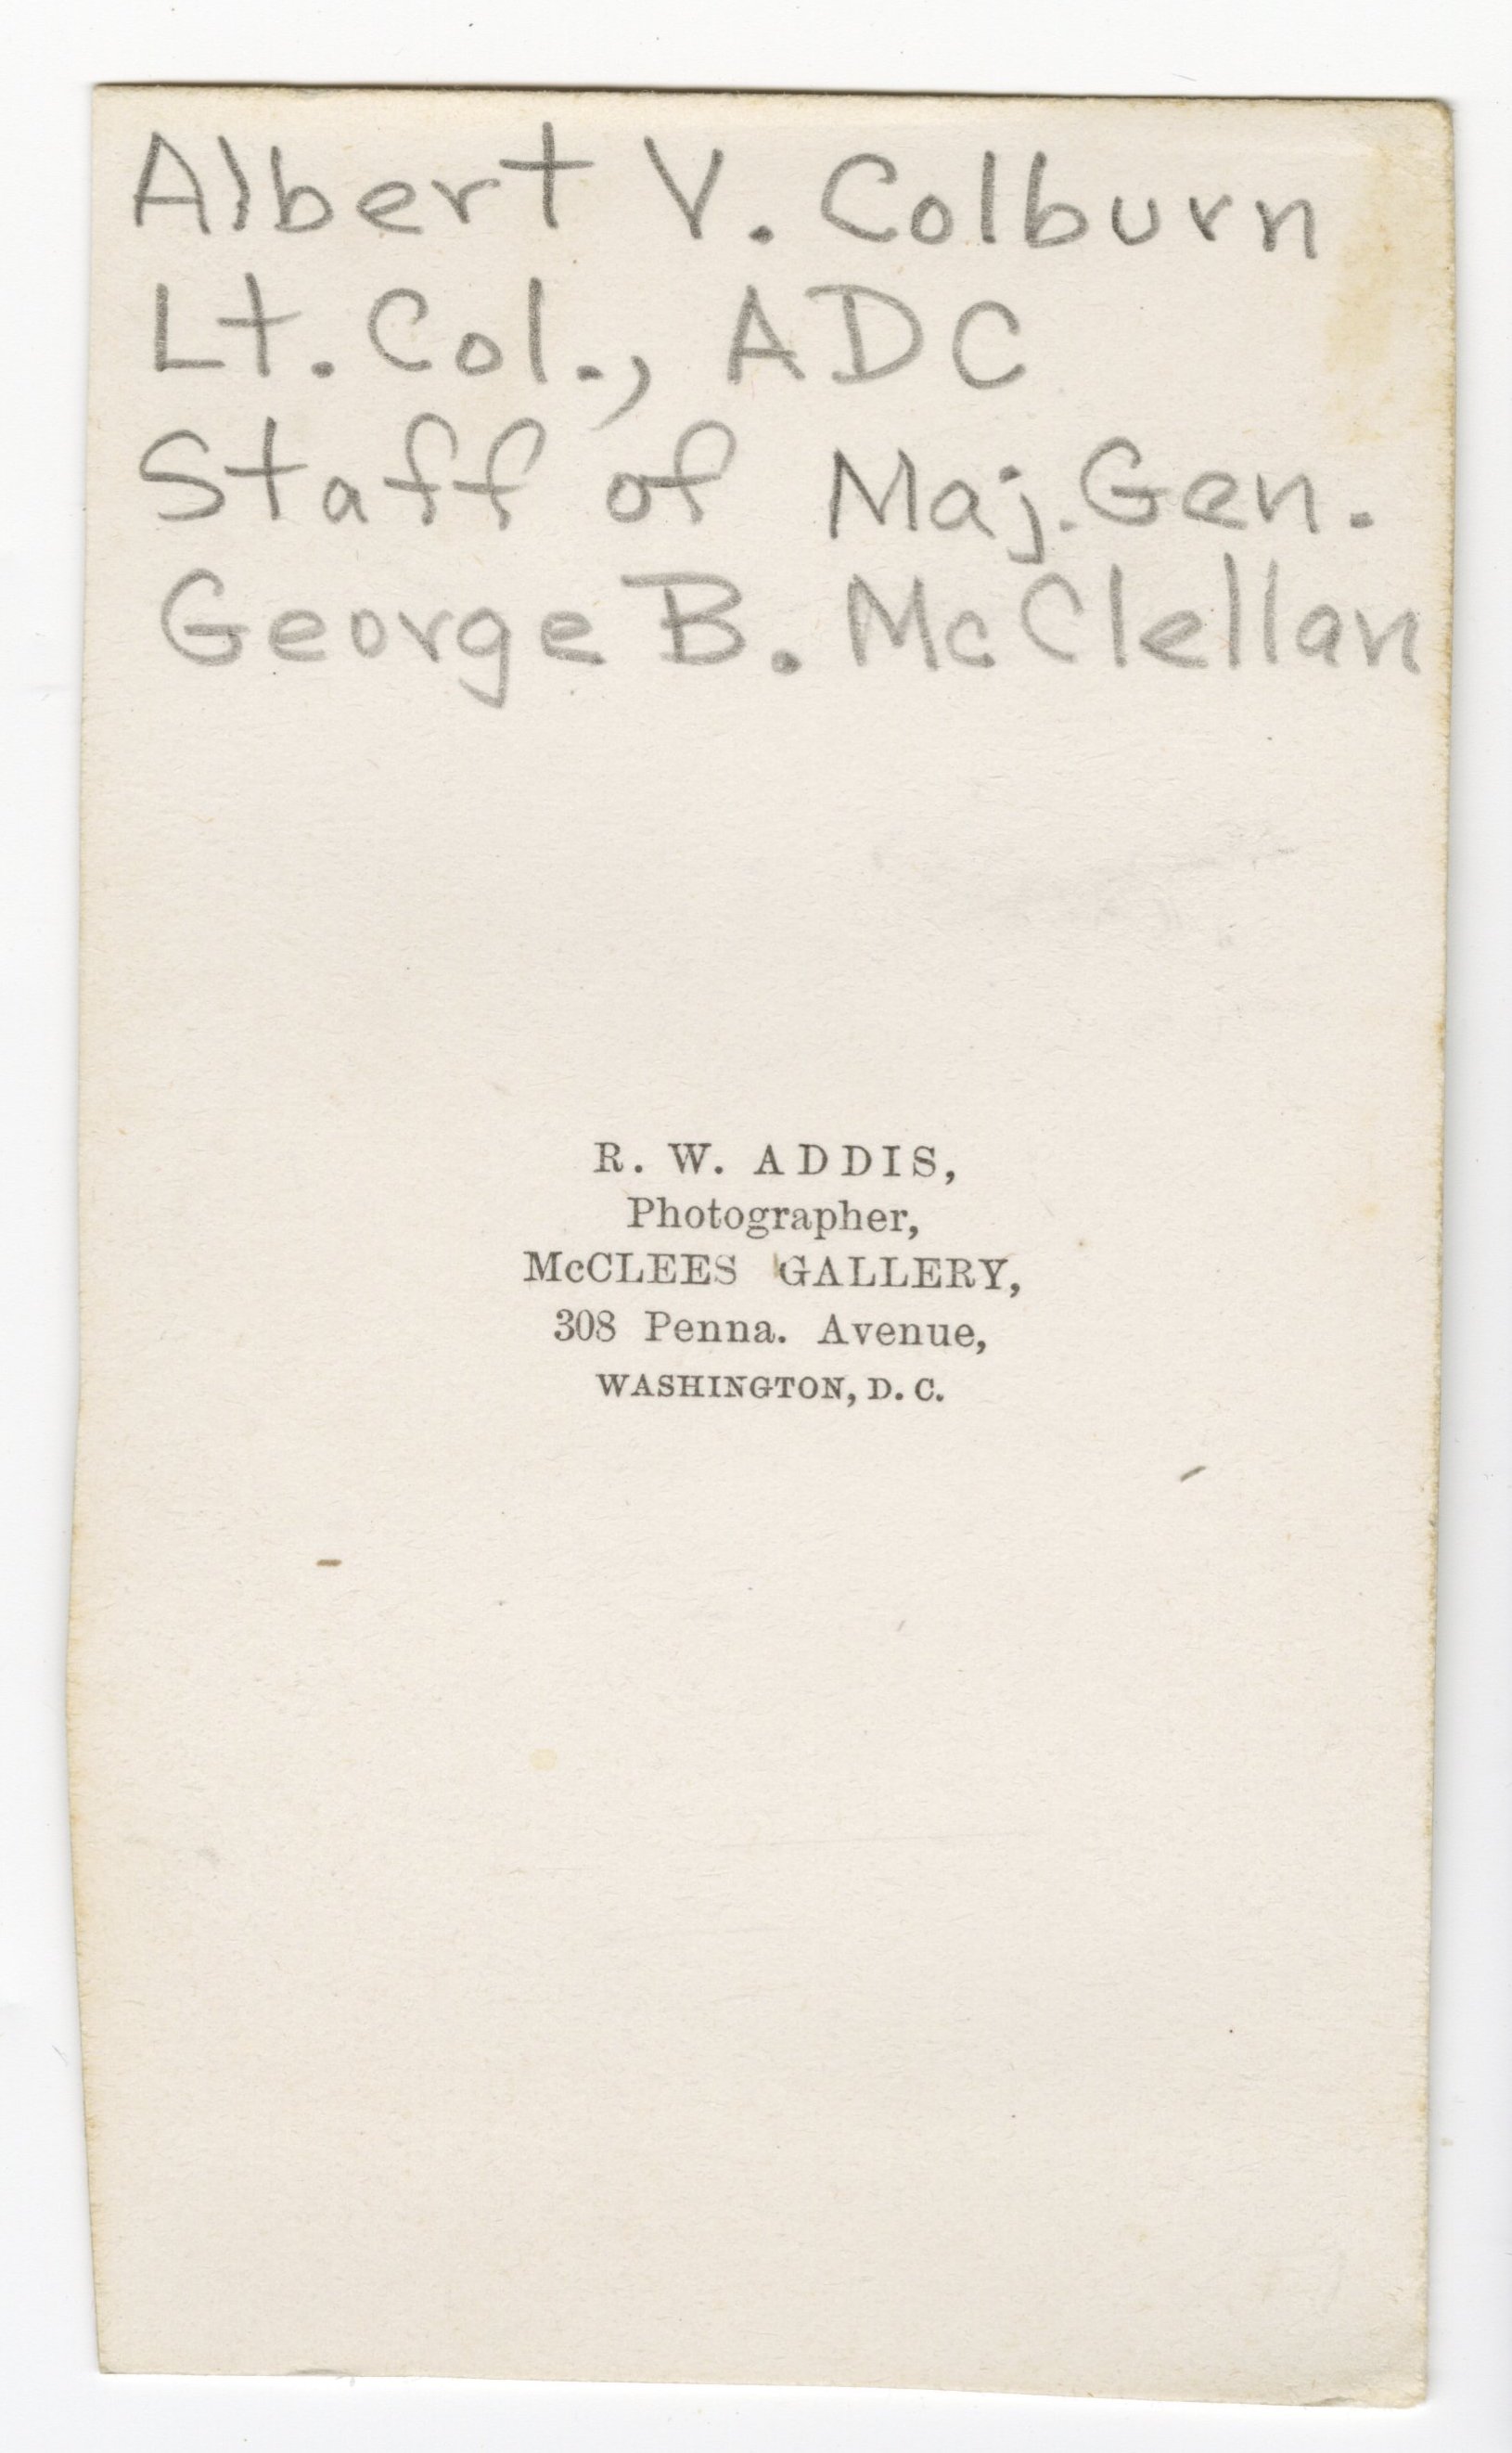 Albert V. Colburn
Lt. Col., ADC
Staff of Maj. Gen.
George B. McClellan
R. W. ADDIS,
Photographer,
McCLEES GALLERY,
308 Penna. Avenue,
WASHINGTON, D. C.